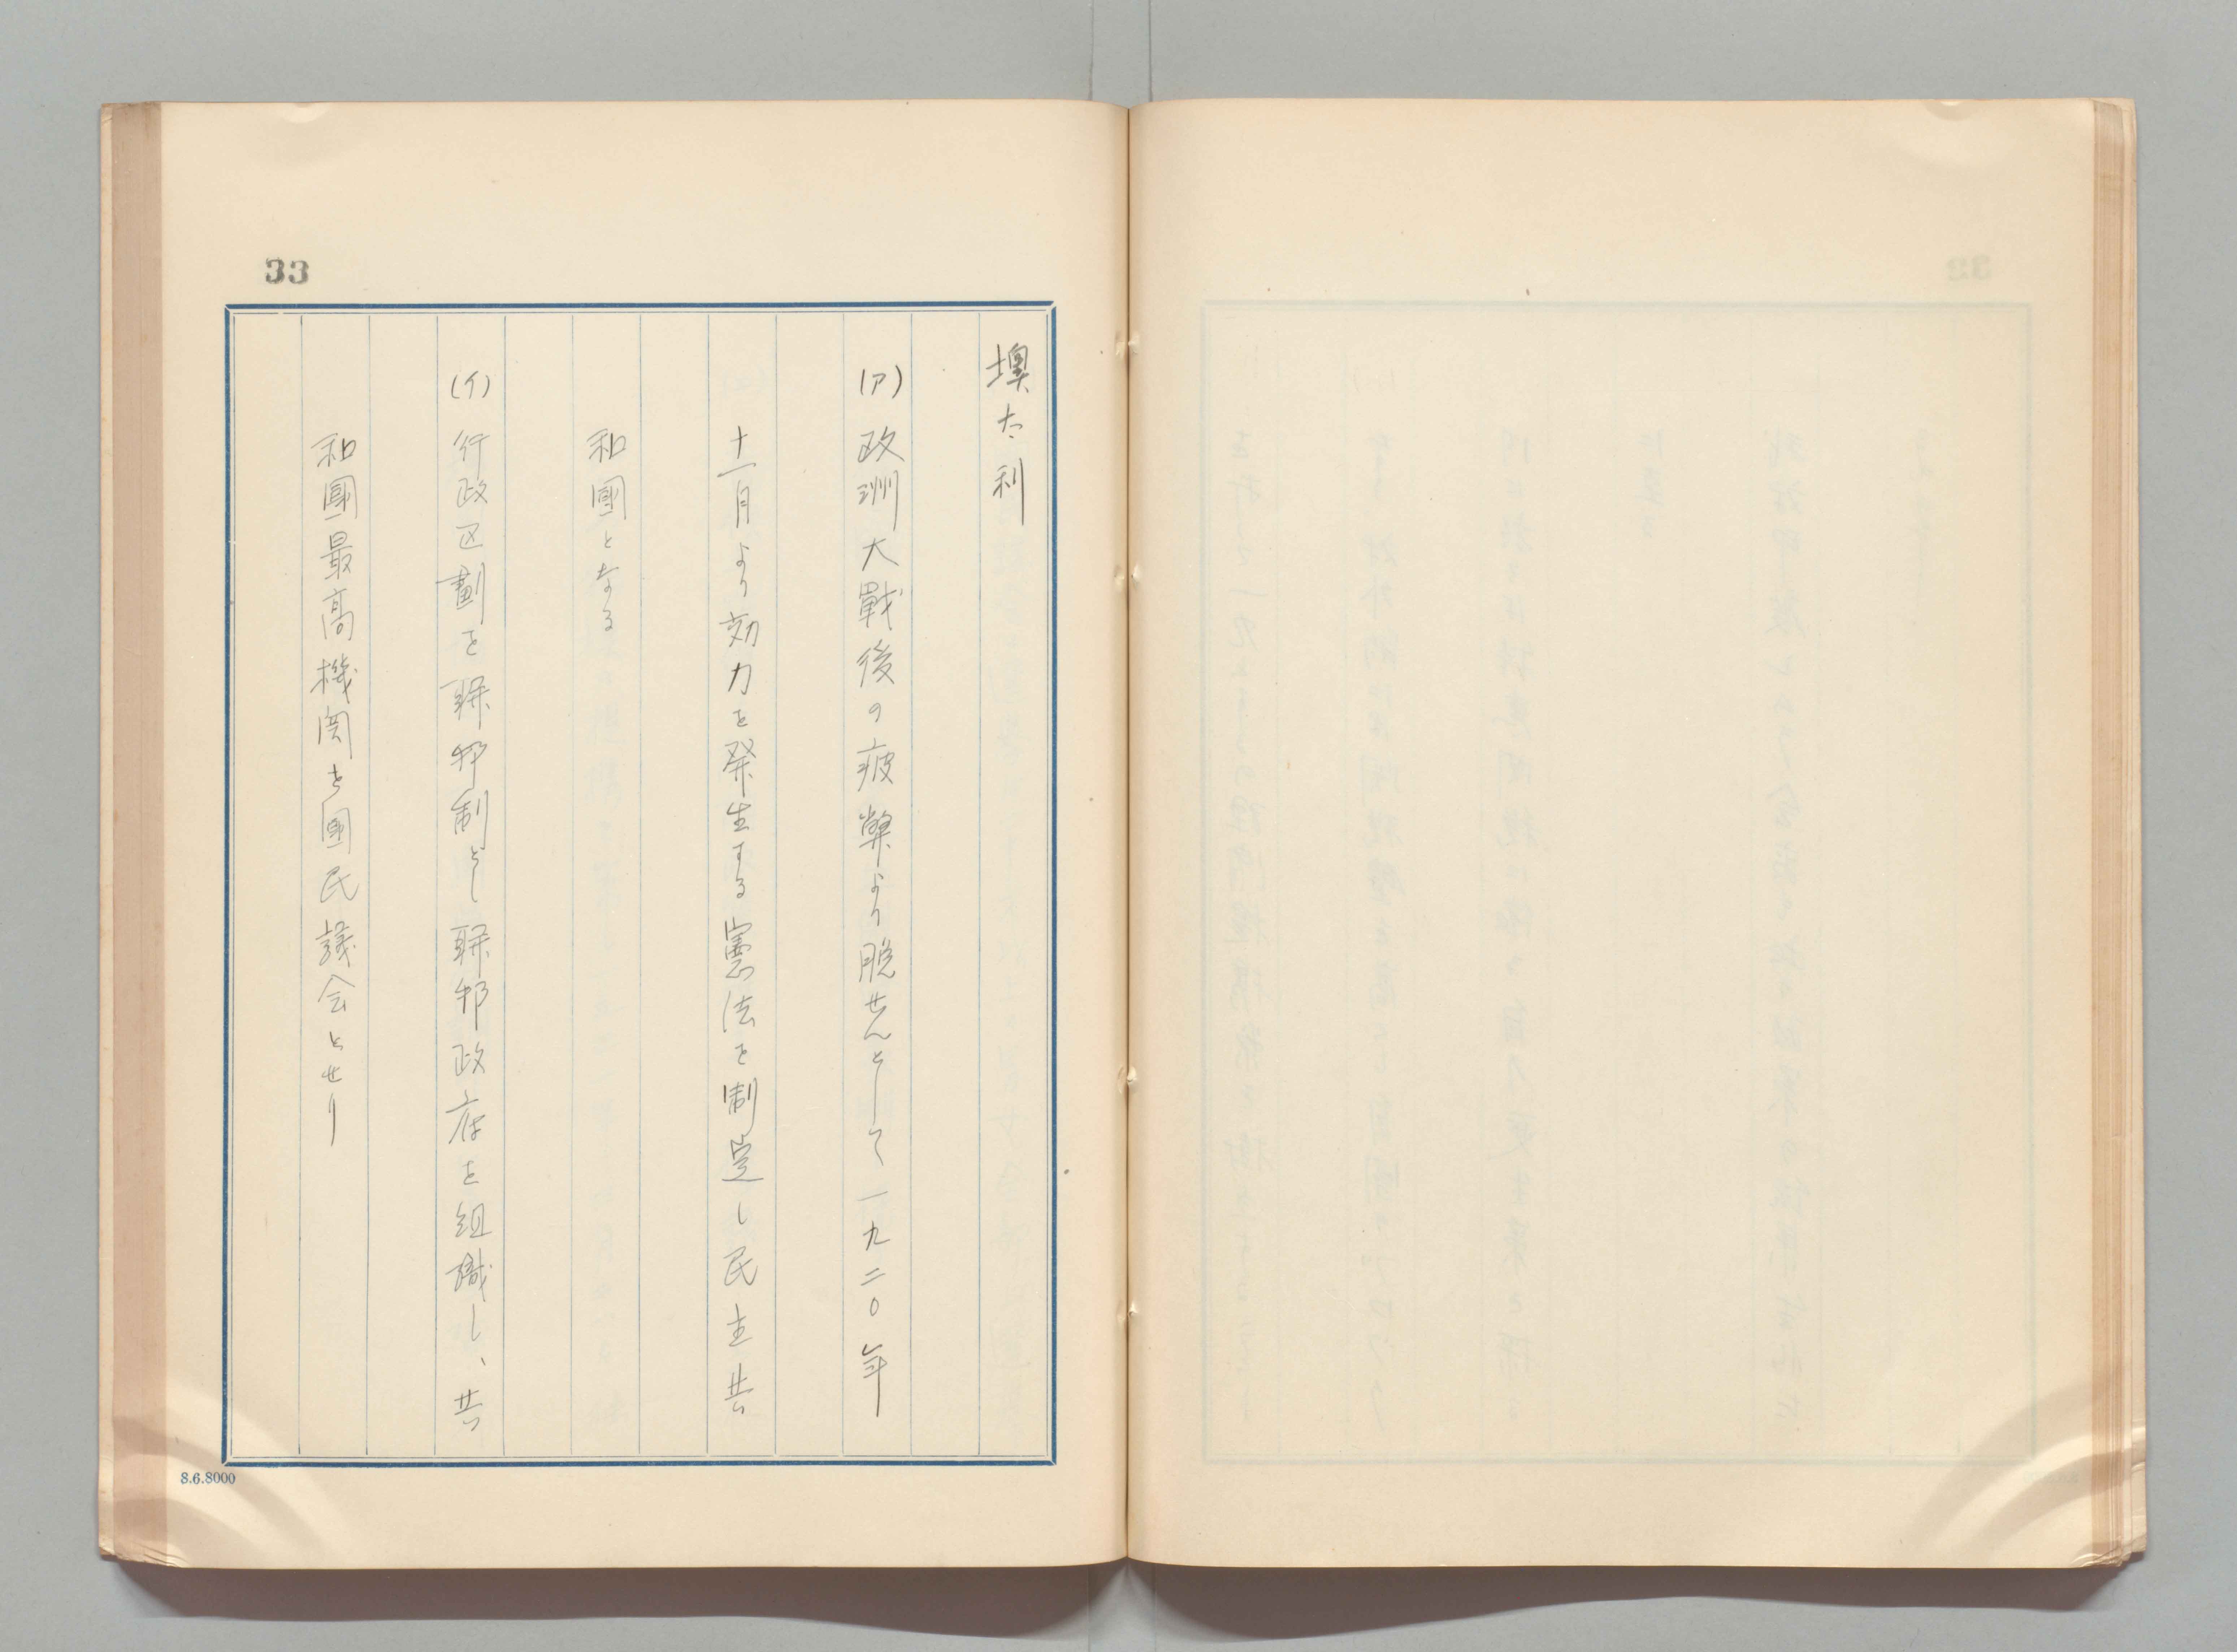 33
墺太利
(ア)政洲大戰後の疲弊より脱せんとして一九二〇年
十一月より効力を発生する憲法を制定し民主共
和國となる
(イ)行政区劃を聯邦制とし聯邦政府を組識し、共
和國最高機関を國民議会とせり
8.6.8000